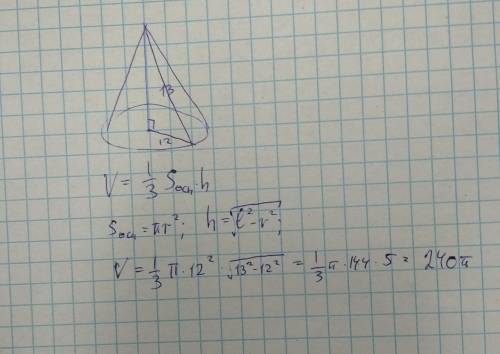 13
12
V = 1/3 Sосн · h
Sосн = πr²; h = √(l² - r²);
V = 1/3 π · 12² · √(13² - 12²) = 1/3 π · 144 · 5 = 240π